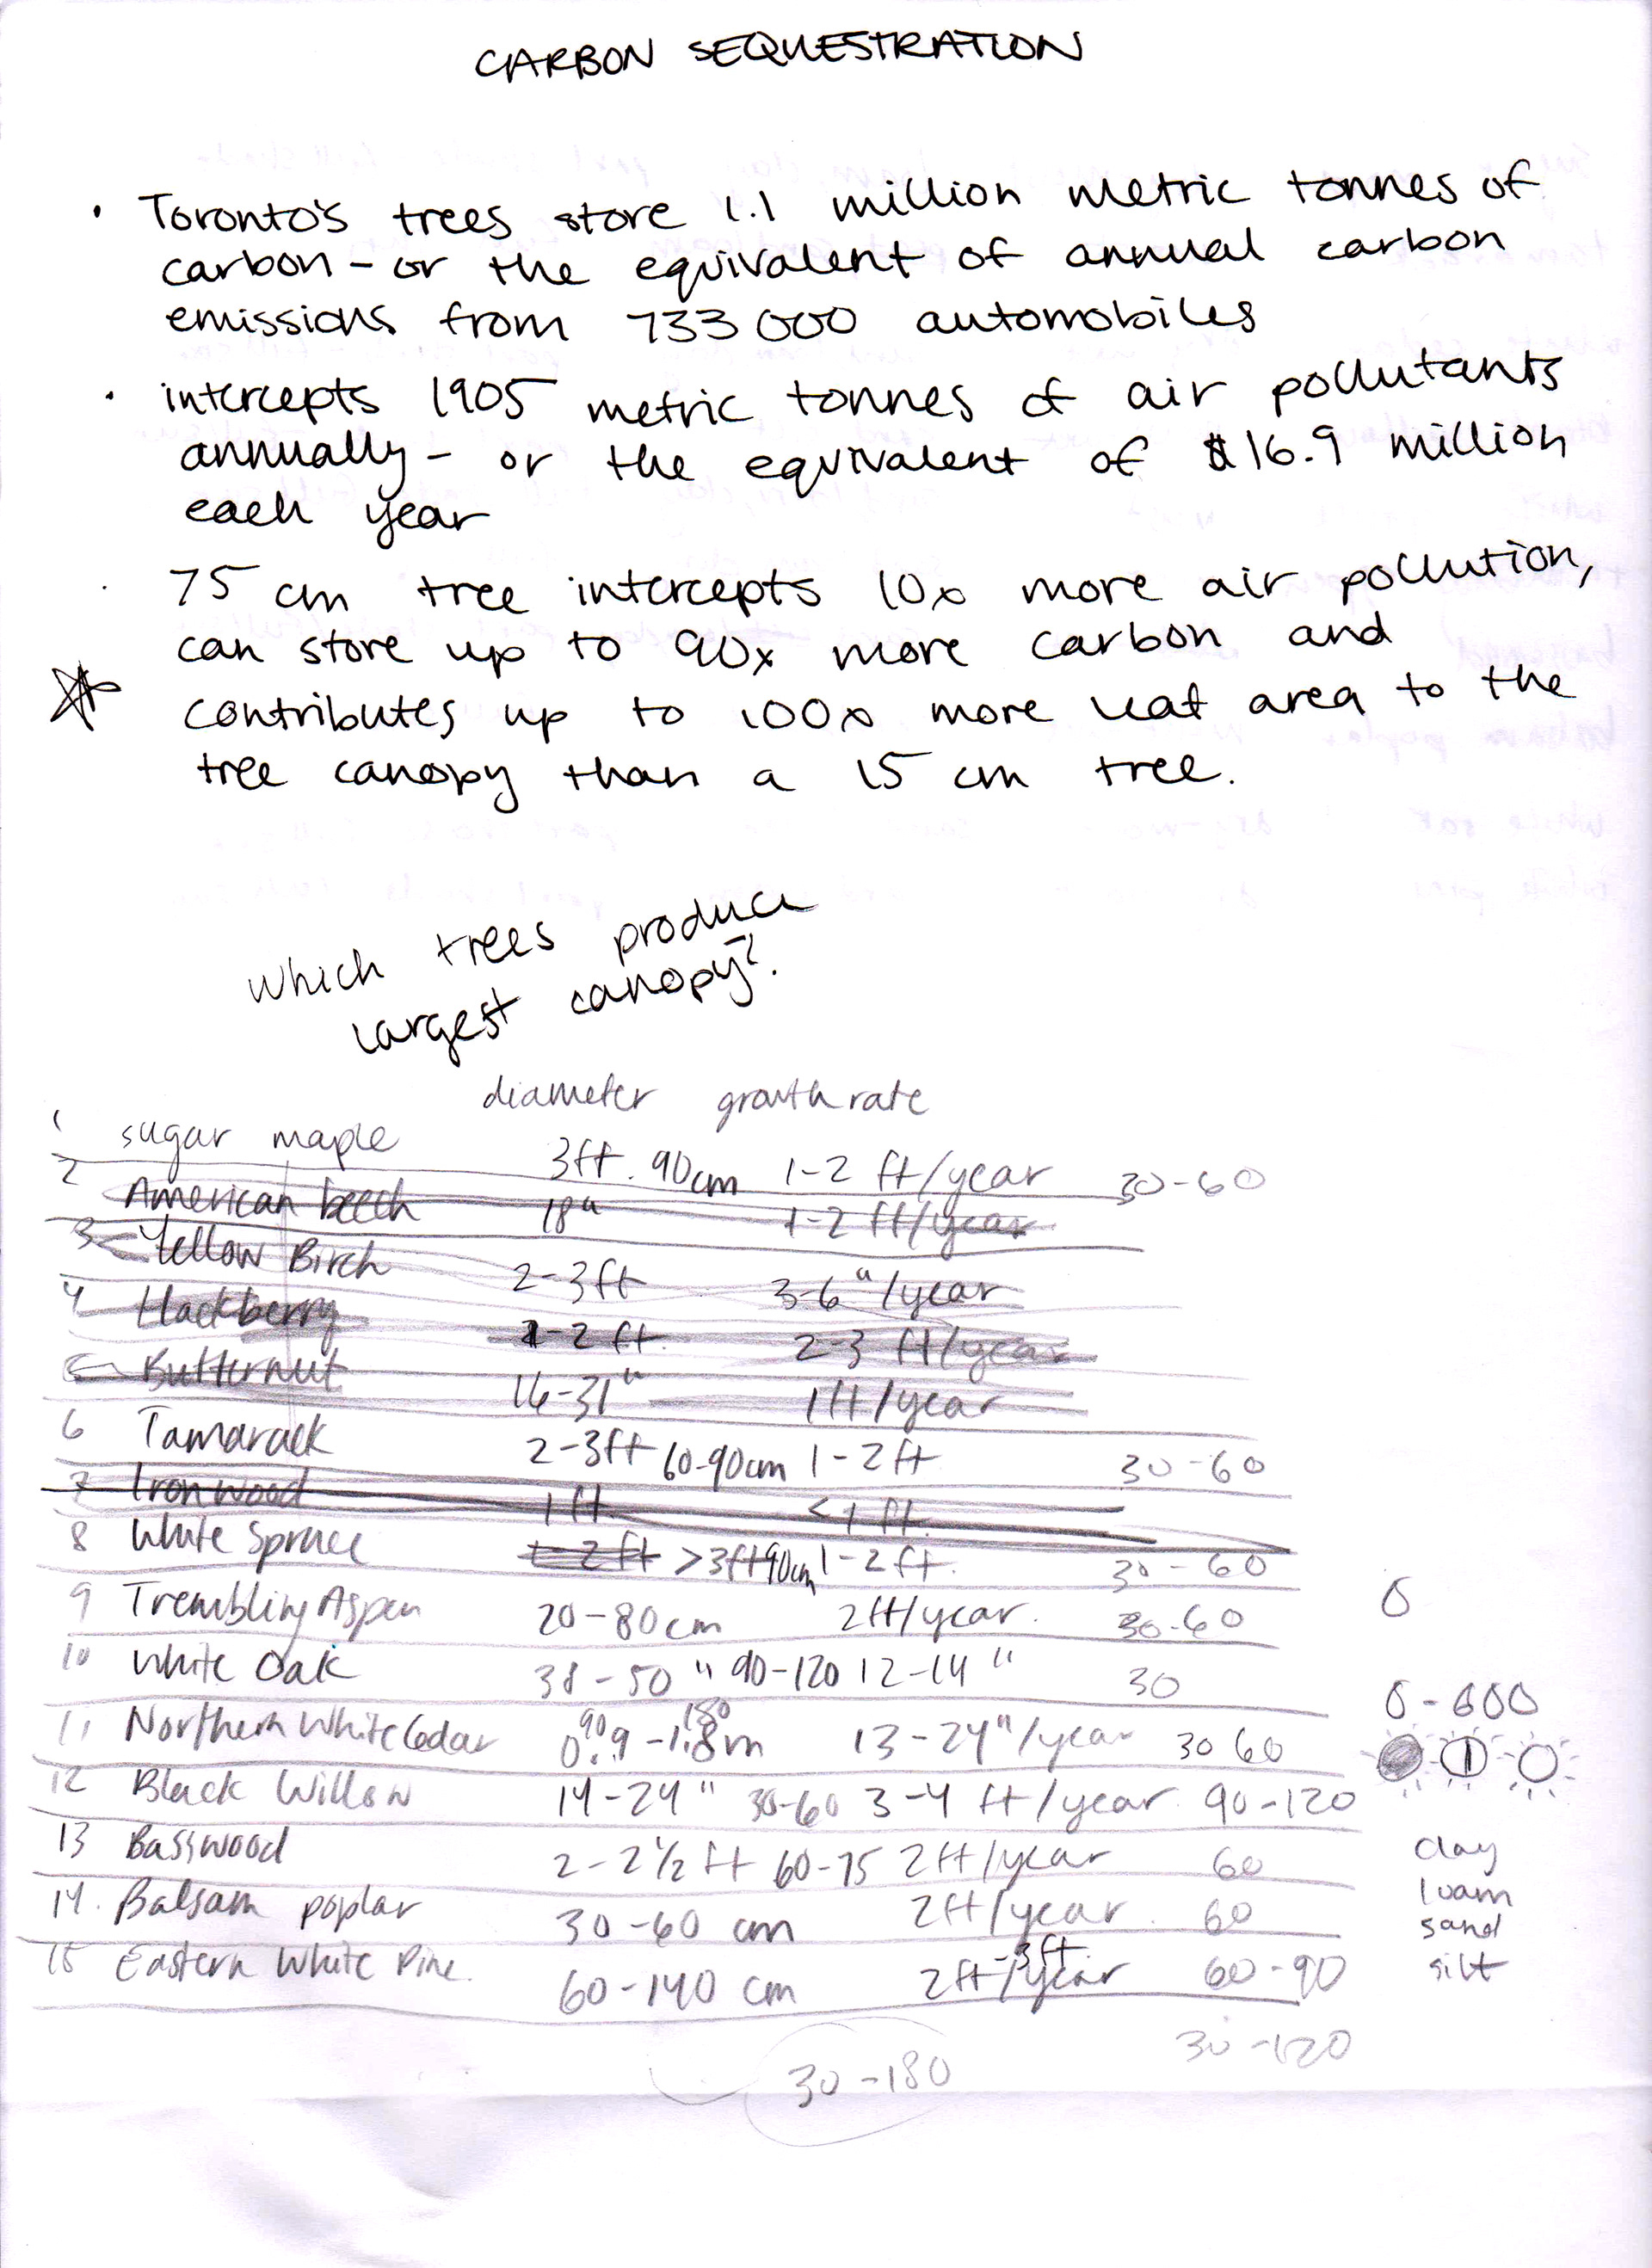 CARBON SEQUESTRATION
• Toronto's trees store 1.1 million metric tonnes of
carbon - or the equivalent of annual carbon
emissions from 733 000 automobiles
• intercepts 1905 metric tonnes of air pollutants
annually - or the equivalent of $16.9 million
each year
• 75 cm tree intercepts 10x more air pollution,
can store up to 90x more carbon and
contributes up to 100x more leaf area to the
tree canopy than a 15 cm tree.
which trees produce
largest canopy?
diameter growth rate
1 sugar maple 3ft. 90cm 1-2 ft/year 30-60
2 American beech 18" 1-2 ft/year
3 Yellow Birch 2-3ft 3-6"/year
4 Hackberry 1-2 ft. 2-3 ft/year
5 Butternut 16-31" 1ft/year
6 Tamarack 2-3ft 60-90cm 1-2ft 30-60
7 Ironwood 1ft. <1 ft.
8 White Spruce 1-2ft >3ft 90cm 1-2ft. 30-60
9 Trembling Aspen 20-80cm 2ft/year. 30-60
10 White Oak 38-50" 90-120 12-14" 30
11 Northern White Cedar 0.9-1.8m 90 180 13-24"/year 30 60
12 Black Willow 14-24" 30-60 3-4 ft/year 90-120
13 Basswood 2-2½ ft 60-75 2ft/year 60
14. Balsam poplar 30-60 cm 2ft/year. 60
15 Eastern White Pine. 60-140 cm 2ft-3ft./year 60-90
30-180 30-120
0
0-600
clay
loam
sand
silt